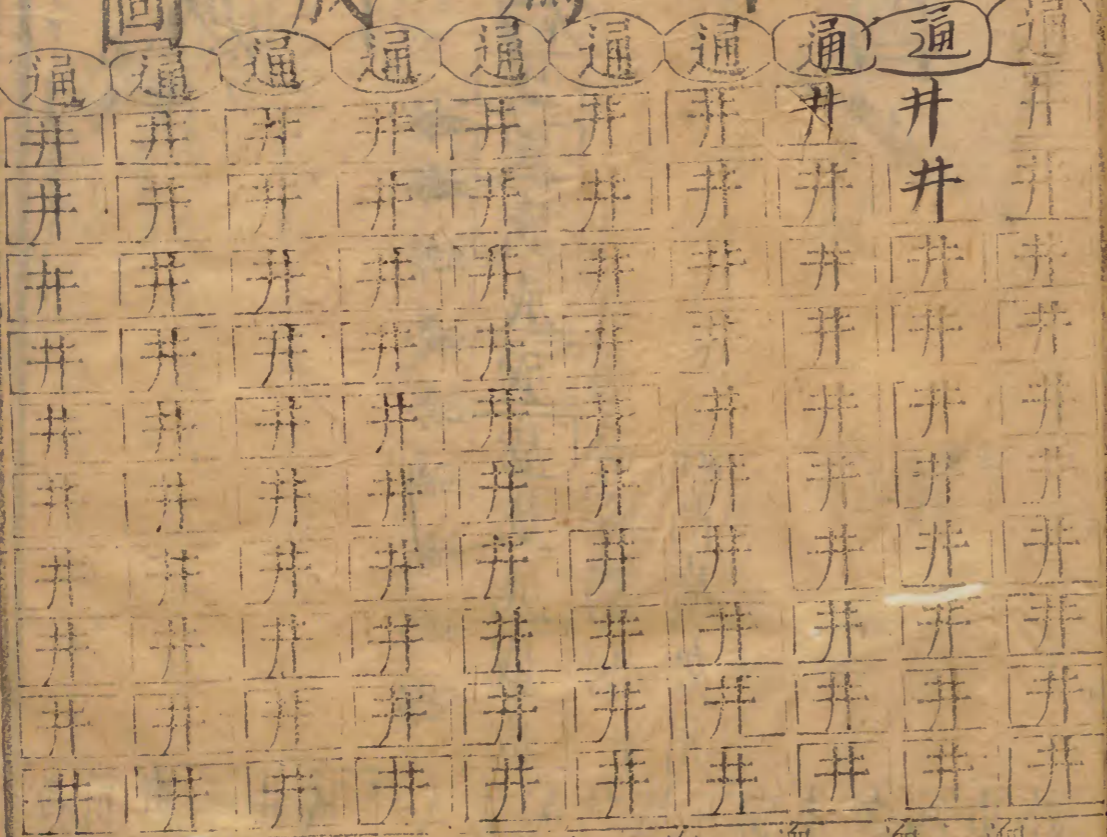 為成圖
通井井井井井井井井井井
通井井井井井井井井井井
通井井井井井井井井井井
通井井井井井井井井井井
通井井井井井井井井井井
通井井井井井井井井井井
通井井井井井井井井井井
通井井井井井井井井井井
通井井井井井井井井井井
通井井井井井井井井井井